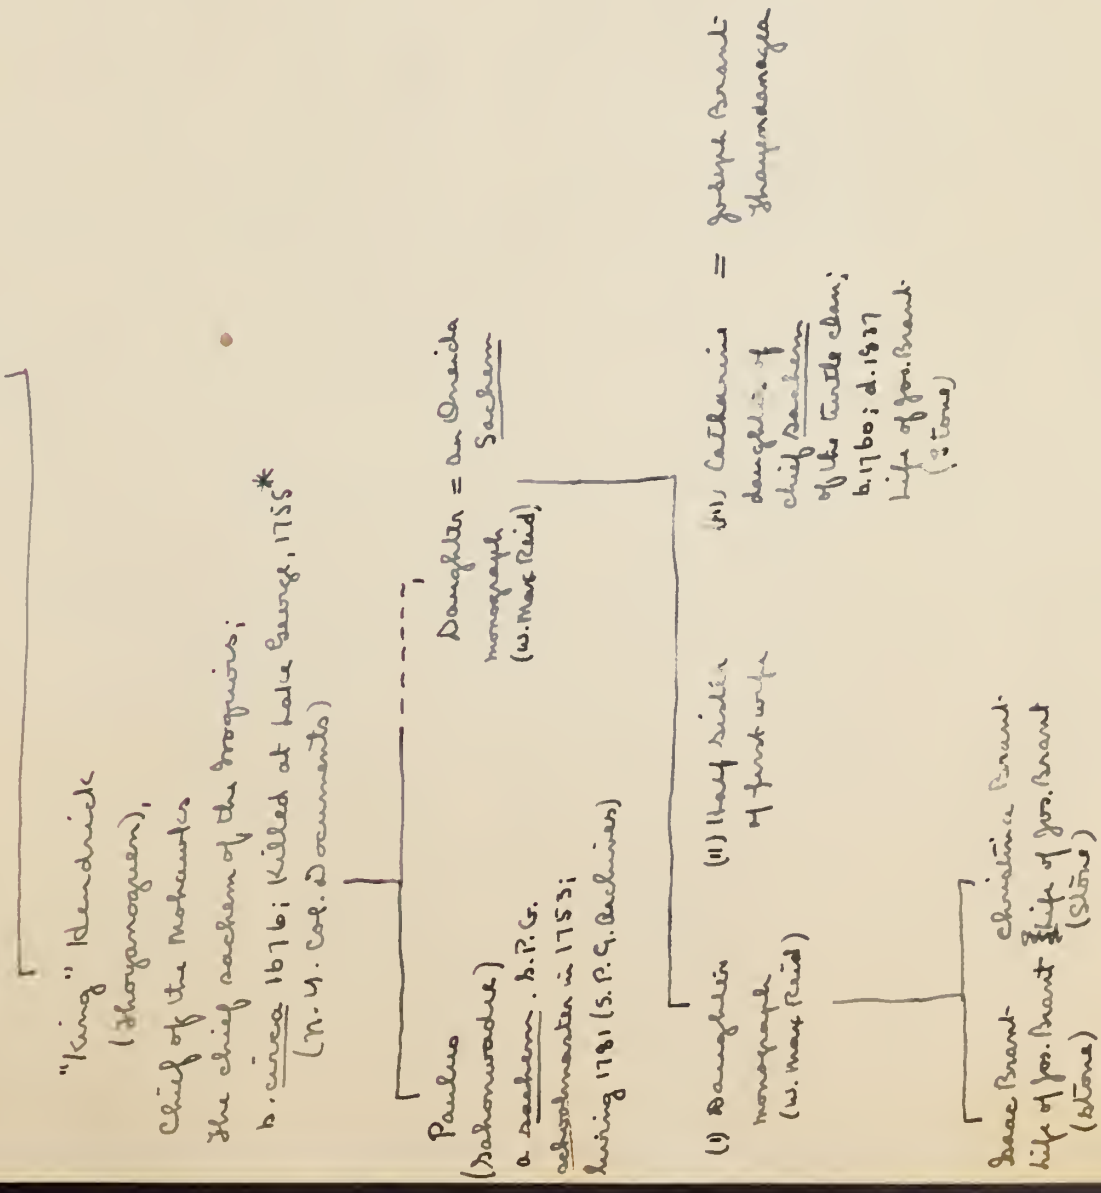 "King" Hendrick
(Thoyanoguen),
Chief of the Mohawks
The chief sachem of the Iroquois;
b. circa 1676; killed at Lake George, 1755*
(N. Y. Col. Documents)
Paulus
(Sahonwadie)
a sachem. S.P.G.
schoolmaster in 1753;
living 1781 (S.P.G. Archives)
Daughter = an Oneida
Sachem
monograph
(W. Max Reid)
(I) Daughter
monograph
(W. Max Reid)
(II) Half sister
of first wife
(III) Catharine = Joseph Brant-
Thayendanagea
daughter of
chief sachem
of the turtle clan;
b. 1760; d. 1837
Life of Jos. Brant-
(Stone)
Isaac Brant-
Life of Jos. Brant
(Stone)
Christina Brant-
Life of Jos. Brant
(Stone)